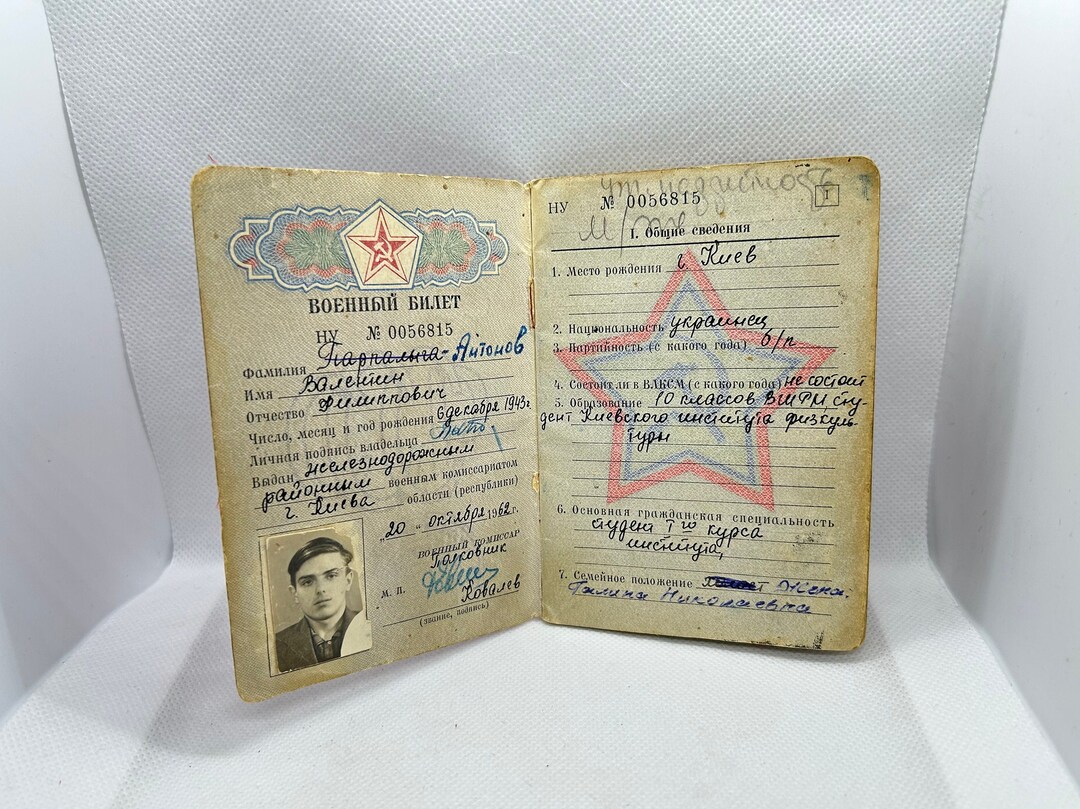 ВОЕННЫЙ БИЛЕТ
НУ № 0056815
Фамилия Антонов
Имя Валентин
Отчество Филиппович
Число, месяц и год рождения 6 декабря 1943 г
Личная подпись владельца
Выдан железнодорожным
районным военным комиссариатом
г. Киева области (республики)
„20 „ октября 1962 г.
ВОЕННЫЙ КОМИССАР
Полковник
М. П.
Ковалев
(звание, подпись)
НУ № 0056815 I
I. Общие сведения
1. Место рождения г. Киев
2. Национальность украинец
3. Партийность (с какого года) б/п
4. Состоит ли в ВЛКСМ (с какого года) не состоит
5. Образование 10 классов ВШРМ, сту-
дент Киевского института физкуль-
туры
6. Основная гражданская специальность
студент I го курса
института
7. Семейное положение Холост Жена.
Галина Николаевна